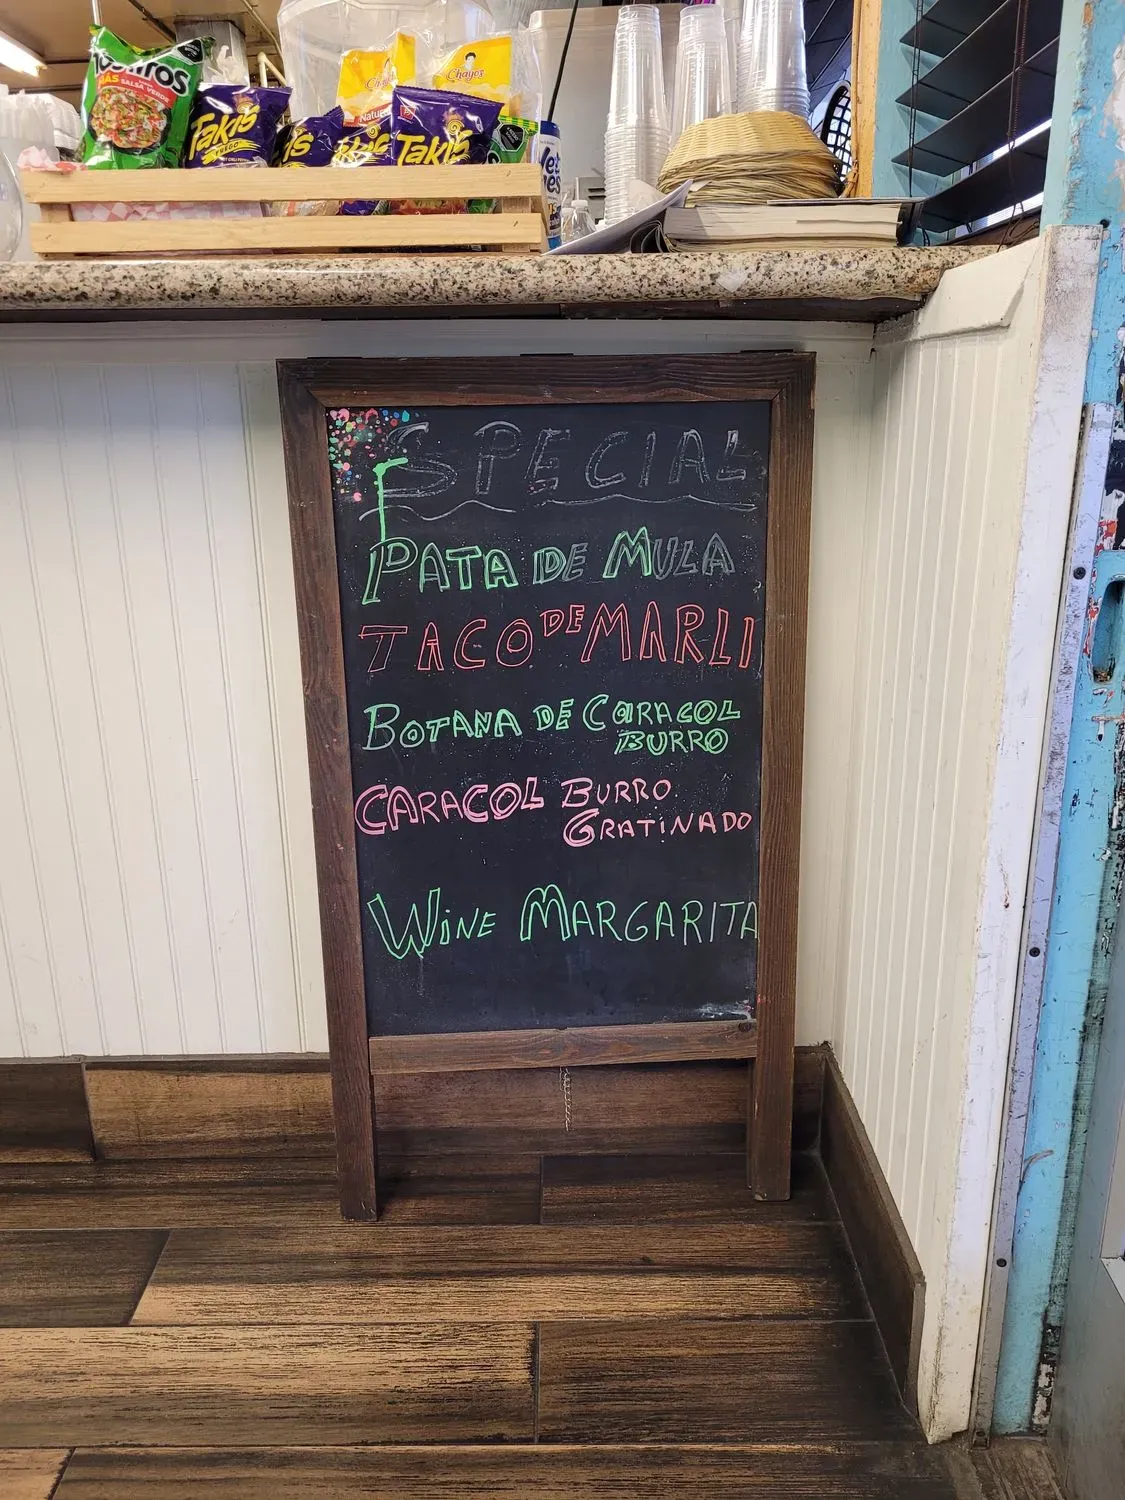 TOSTITOS
SALSA VERDE
Takis
FUEGO
Takis
Chayos
Natural
Chayos
SPECIAL
PATA DE MULA
TACO DE MARLI
BOTANA DE CARACOL
BURRO
CARACOL BURRO
GRATINADO
WINE MARGARITA